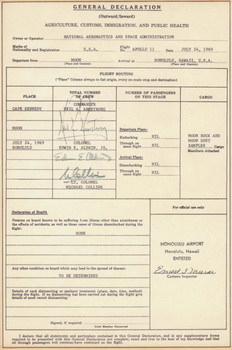 GENERAL DECLARATION
(Outward/Inward)
AGRICULTURE, CUSTOMS, IMMIGRATION, AND PUBLIC HEALTH
Owner or Operator NATIONAL AERONAUTICS AND SPACE ADMINISTRATION
Marks of Nationality and Registration U.S.A. Flight No. APOLLO 11 Date JULY 24, 1969
Departure from MOON Arrival at HONOLULU, HAWAII, U.S.A.
(Place and Country) (Place and Country)
FLIGHT ROUTING
("Place" Column always to list origin, every en-route stop and destination)
PLACE TOTAL NUMBER OF CREW NUMBER OF PASSENGERS ON THIS STAGE CARGO
CAPE KENNEDY COMMANDER NEIL A. ARMSTRONG
MOON
JULY 24, 1969 HONOLULU COLONEL EDWIN E. ALDRIN, JR.
LT. COLONEL MICHAEL COLLINS
Departure Place:
Embarking NIL
Through on same flight NIL
Arrival Place:
Disembarking NIL
Through on same flight NIL
MOON ROCK AND MOON DUST SAMPLES
Cargo Manifests Attached
Declaration of Health
Persons on board known to be suffering from illness other than airsickness or the effects of accidents, as well as those cases of illness disembarked during the flight:
NONE
Any other condition on board which may lead to the spread of disease:
TO BE DETERMINED
Details of each disinsecting or sanitary treatment (place, date, time, method) during the flight. If no disinsecting has been carried out during the flight give details of most recent disinsecting:
Signed, if required
Crew Member Concerned
For official use only
HONOLULU AIRPORT
Honolulu, Hawaii
ENTERED
Customs Inspector
I declare that all statements and particulars contained in this General Declaration, and in any supplementary forms required to be presented with this General Declaration are complete, exact and true to the best of my knowledge and that all through passengers will continue/have continued on the flight.